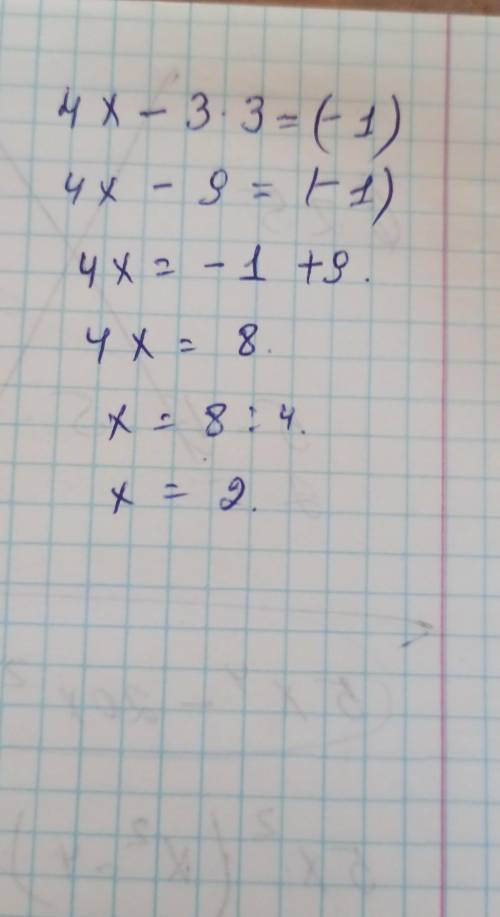 4x - 3 · 3 = (-1)
4x - 9 = (-1)
4x = -1 + 9.
4x = 8.
x = 8 : 4.
x = 2.